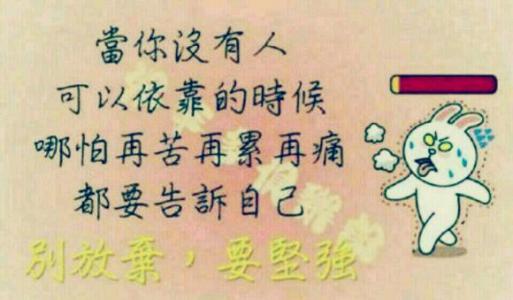 當你沒有人
可以依靠的時候
哪怕再苦再累再痛
都要告訴自己
別放棄，要堅強